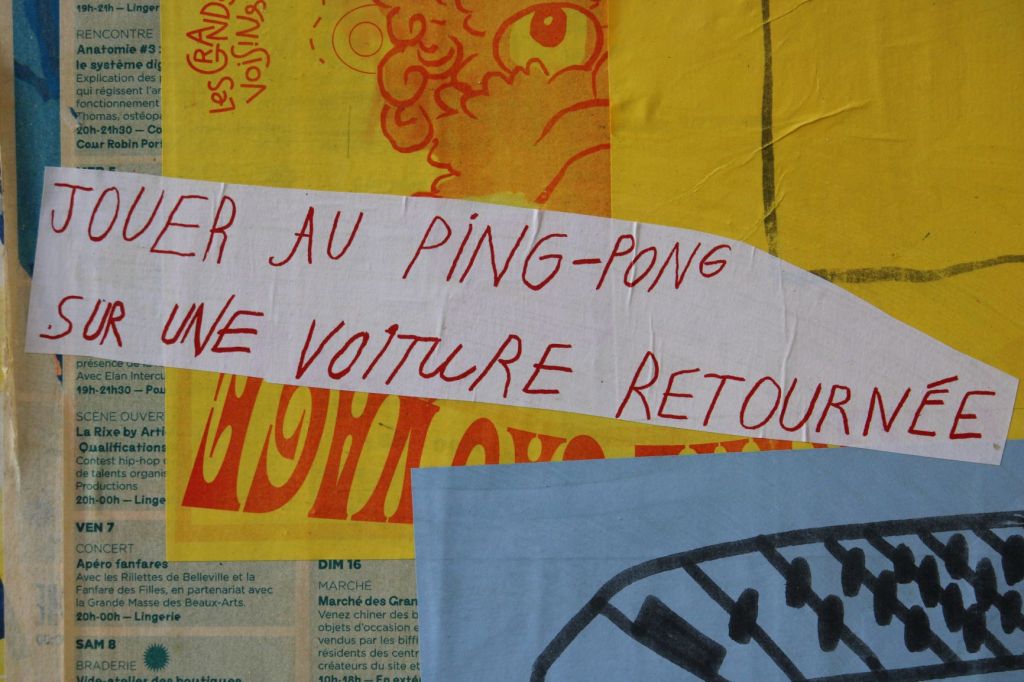 19h-21h — Linger
RENCONTRE
Anatomie #3 :
le système dig
Explication des
qui régissent l'ar
fonctionnement
Thomas, ostéopa
20h-21h30 — Co
Cour Robin Port
LES GRANDS
VOISINS
JOUER AU PING-PONG
SUR UNE VOITURE RETOURNÉE
présence de la
Avec Elan Intercu
19h-21h30 — Pou
SCÈNE OUVER
La Rixe by Arti
Qualifications
Contest hip-hop
de talents organis
Productions
20h-00h — Linge
VEN 7
CONCERT
Apéro fanfares
Avec les Rillettes de Belleville et la
Fanfare des Filles, en partenariat avec
la Grande Masse des Beaux-Arts.
20h-00h — Lingerie
SAM 8
BRADERIE
Vide-atelier des boutiques
DIM 16
MARCHÉ
Marché des Gran
Venez chiner des b
objets d'occasion e
vendus par les biffi
résidents des centr
créateurs du site et
10h-18h — En exté